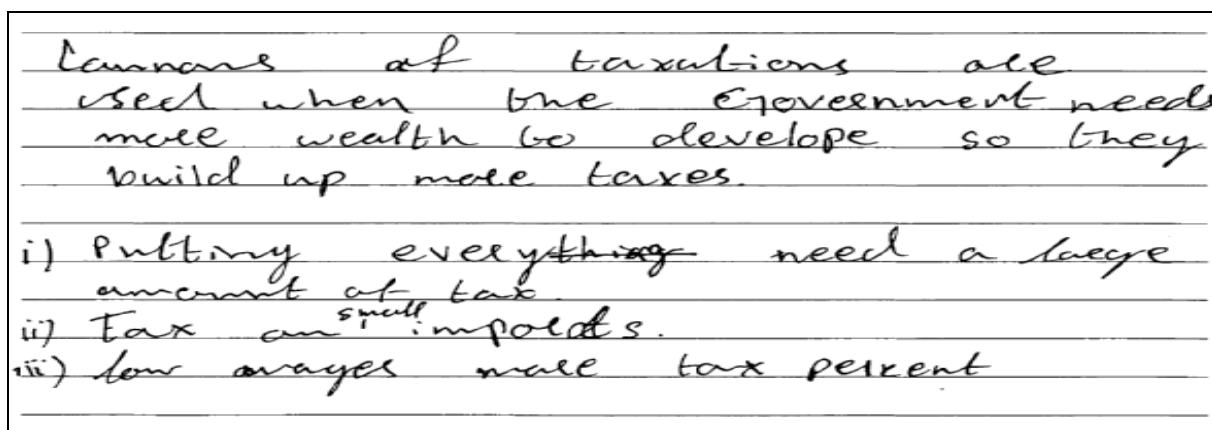 Cannons of taxations are
used when the Government needs
more wealth to develope so they
build up more taxes.
i) Putting every need a large
amount of tax.
ii) Tax on small imports.
iii) low wages more tax percent